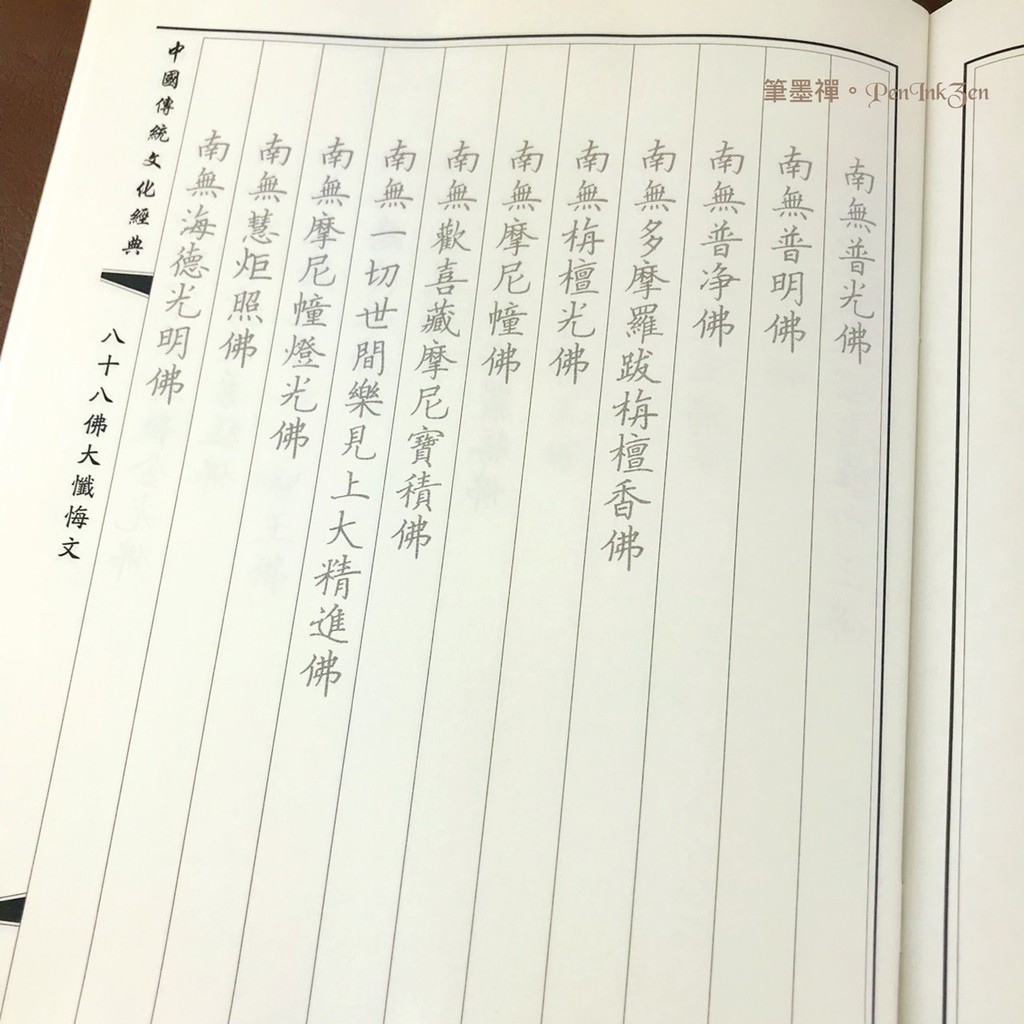 筆墨禪。PenInkZen
南無普光佛
南無普明佛
南無普净佛
南無多摩羅跋栴檀香佛
南無栴檀光佛
南無摩尼幢佛
南無歡喜藏摩尼寶積佛
南無一切世間樂見上大精進佛
南無摩尼幢燈光佛
南無慧炬照佛
南無海德光明佛
中國傳統文化經典
八十八佛大懺悔文